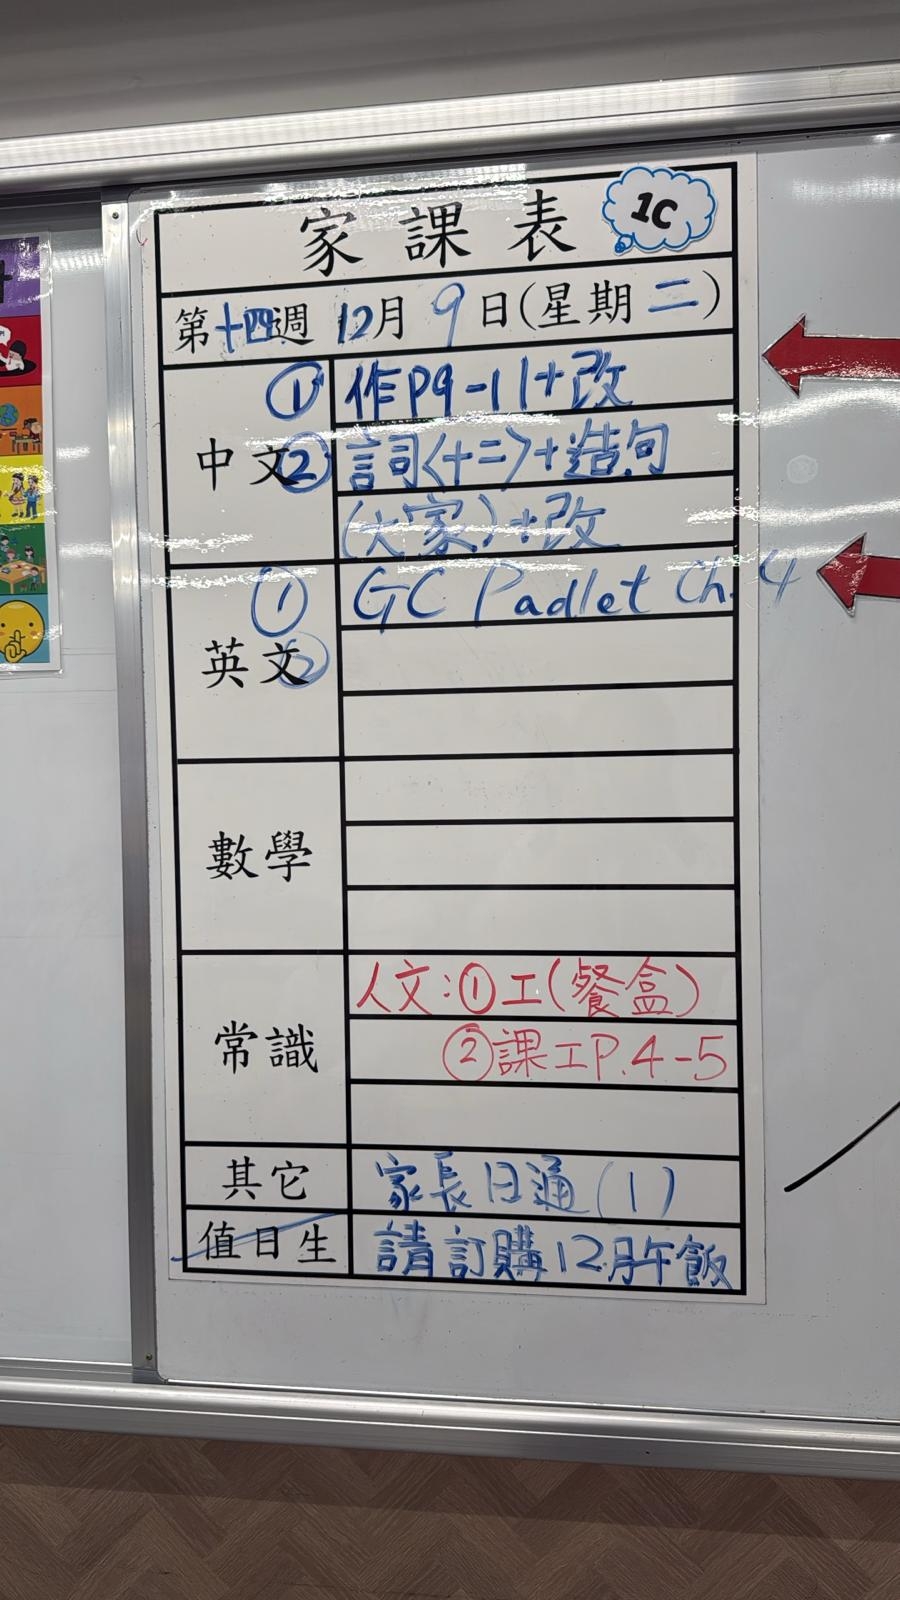 家課表 1C
第十四週 12月9日(星期二)
中文 ① 作P9-11+改
② 詞〈十二〉+造句
(大家)+改
英文 ① GC Padlet Ch. 4
②
數學
常識 人文:①工(餐盒)
②課工P.4-5
其它 家長日通(1)
值日生 請訂購12月午飯